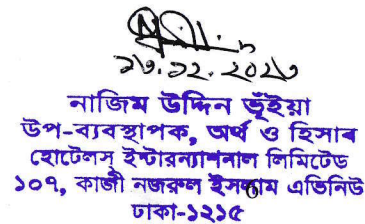 ১৩.১২.২০২৩
নাজিম উদ্দিন ভূঁইয়া
উপ-ব্যবস্থাপক, অর্থ ও হিসাব
হোটেলস্ ইন্টারন্যাশনাল লিমিটেড
১০৭, কাজী নজরুল ইসলাম এভিনিউ
ঢাকা-১২১৫